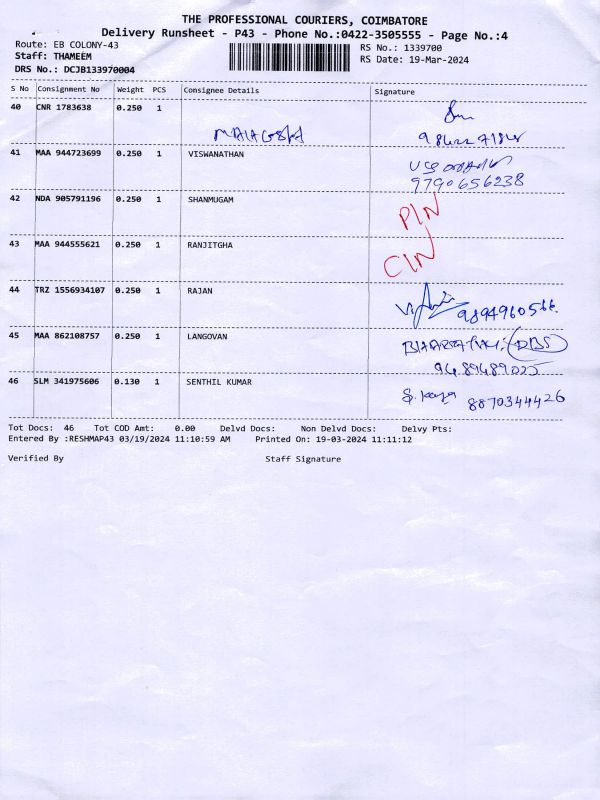 THE PROFESSIONAL COURIERS, COIMBATORE
Delivery Runsheet - P43 - Phone No.:0422-3505555 - Page No.:4
Route: EB COLONY-43
RS No.: 1339700
Staff: THAMEEM
RS Date: 19-Mar-2024
DRS No.: DCJB133970004
S No Consignment No Weight PCS Consignee Details Signature
40 CNR 1783638 0.250 1
41 MAA 944723699 0.250 1 VISWANATHAN
9790656238
42 NDA 905791196 0.250 1 SHANMUGAM PIN
43 MAA 944555621 0.250 1 RANJITGHA CIN
44 TRZ 1556934107 0.250 1 RAJAN 9894960566.
45 MAA 862108757 0.250 1 LANGOVAN (DBS)
46 SLM 341975606 0.130 1 SENTHIL KUMAR 8870344426
Tot Docs: 46 Tot COD Amt: 0.00 Delvd Docs: Non Delvd Docs: Delvy Pts:
Entered By :RESHMAP43 03/19/2024 11:10:59 AM Printed On: 19-03-2024 11:11:12
Verified By Staff Signature